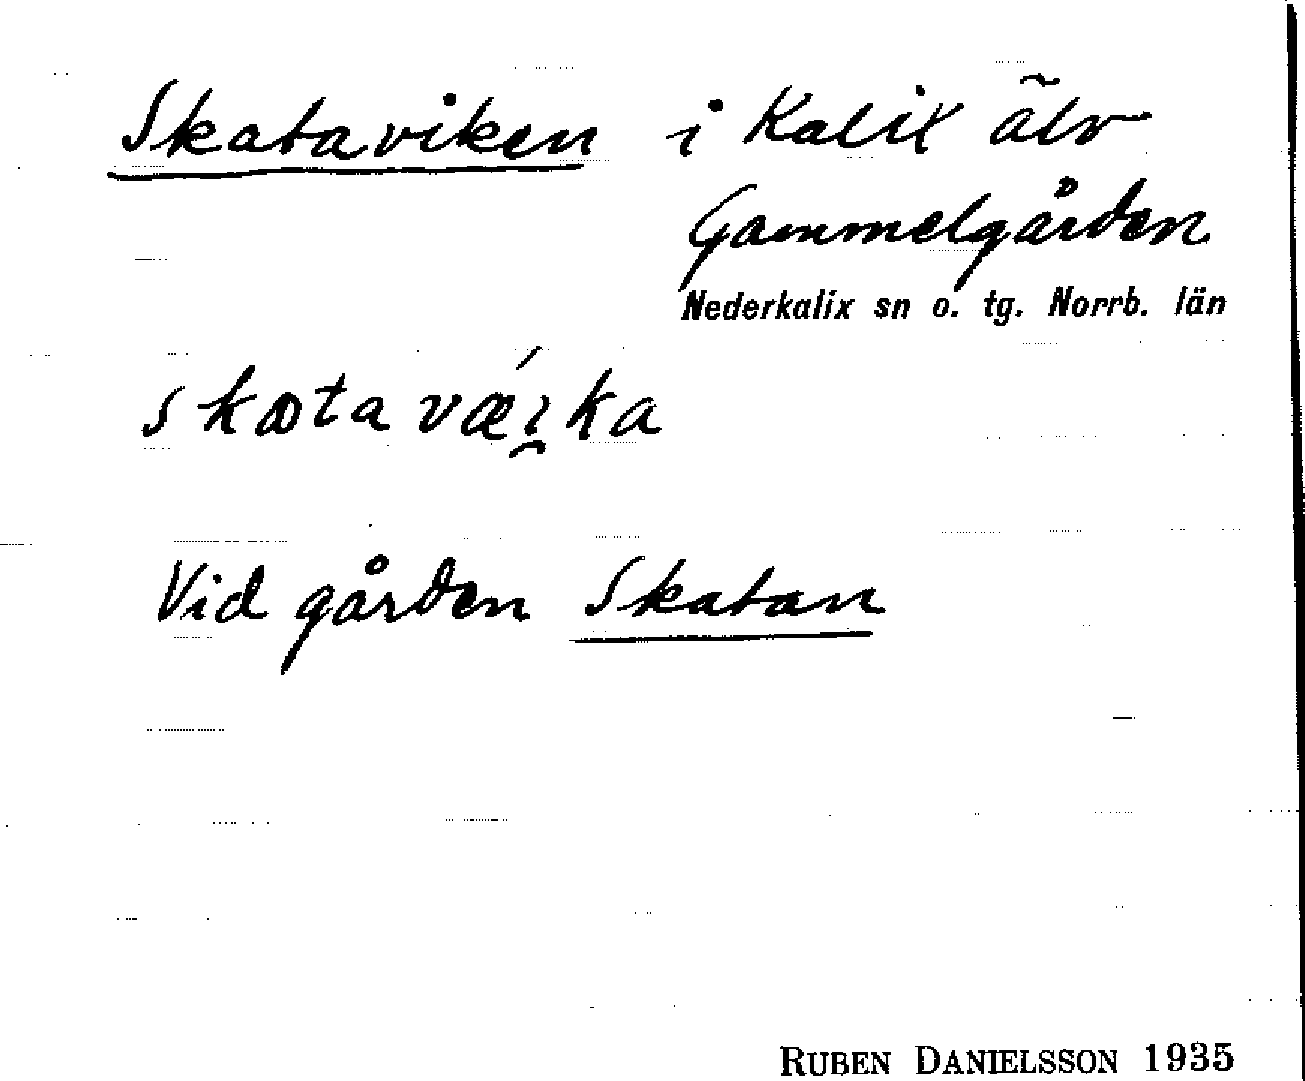 Skataviken i Kalix älv
Gammelgården
Nederkalix sn o. tg. Norrb. län
skatavǽi̯ka
Vid gården Skatan
RUBEN DANIELSSON 1935